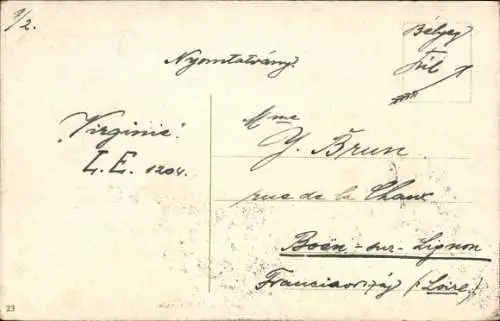 9/2.
Bélyeg
túl
Nyomtatvány.
„Virginie”.
L.E. 1204.
Mme
Y. Brun.
rue de la Chaux
Boën-sur-Lignon
Franciaország (Loire)
23